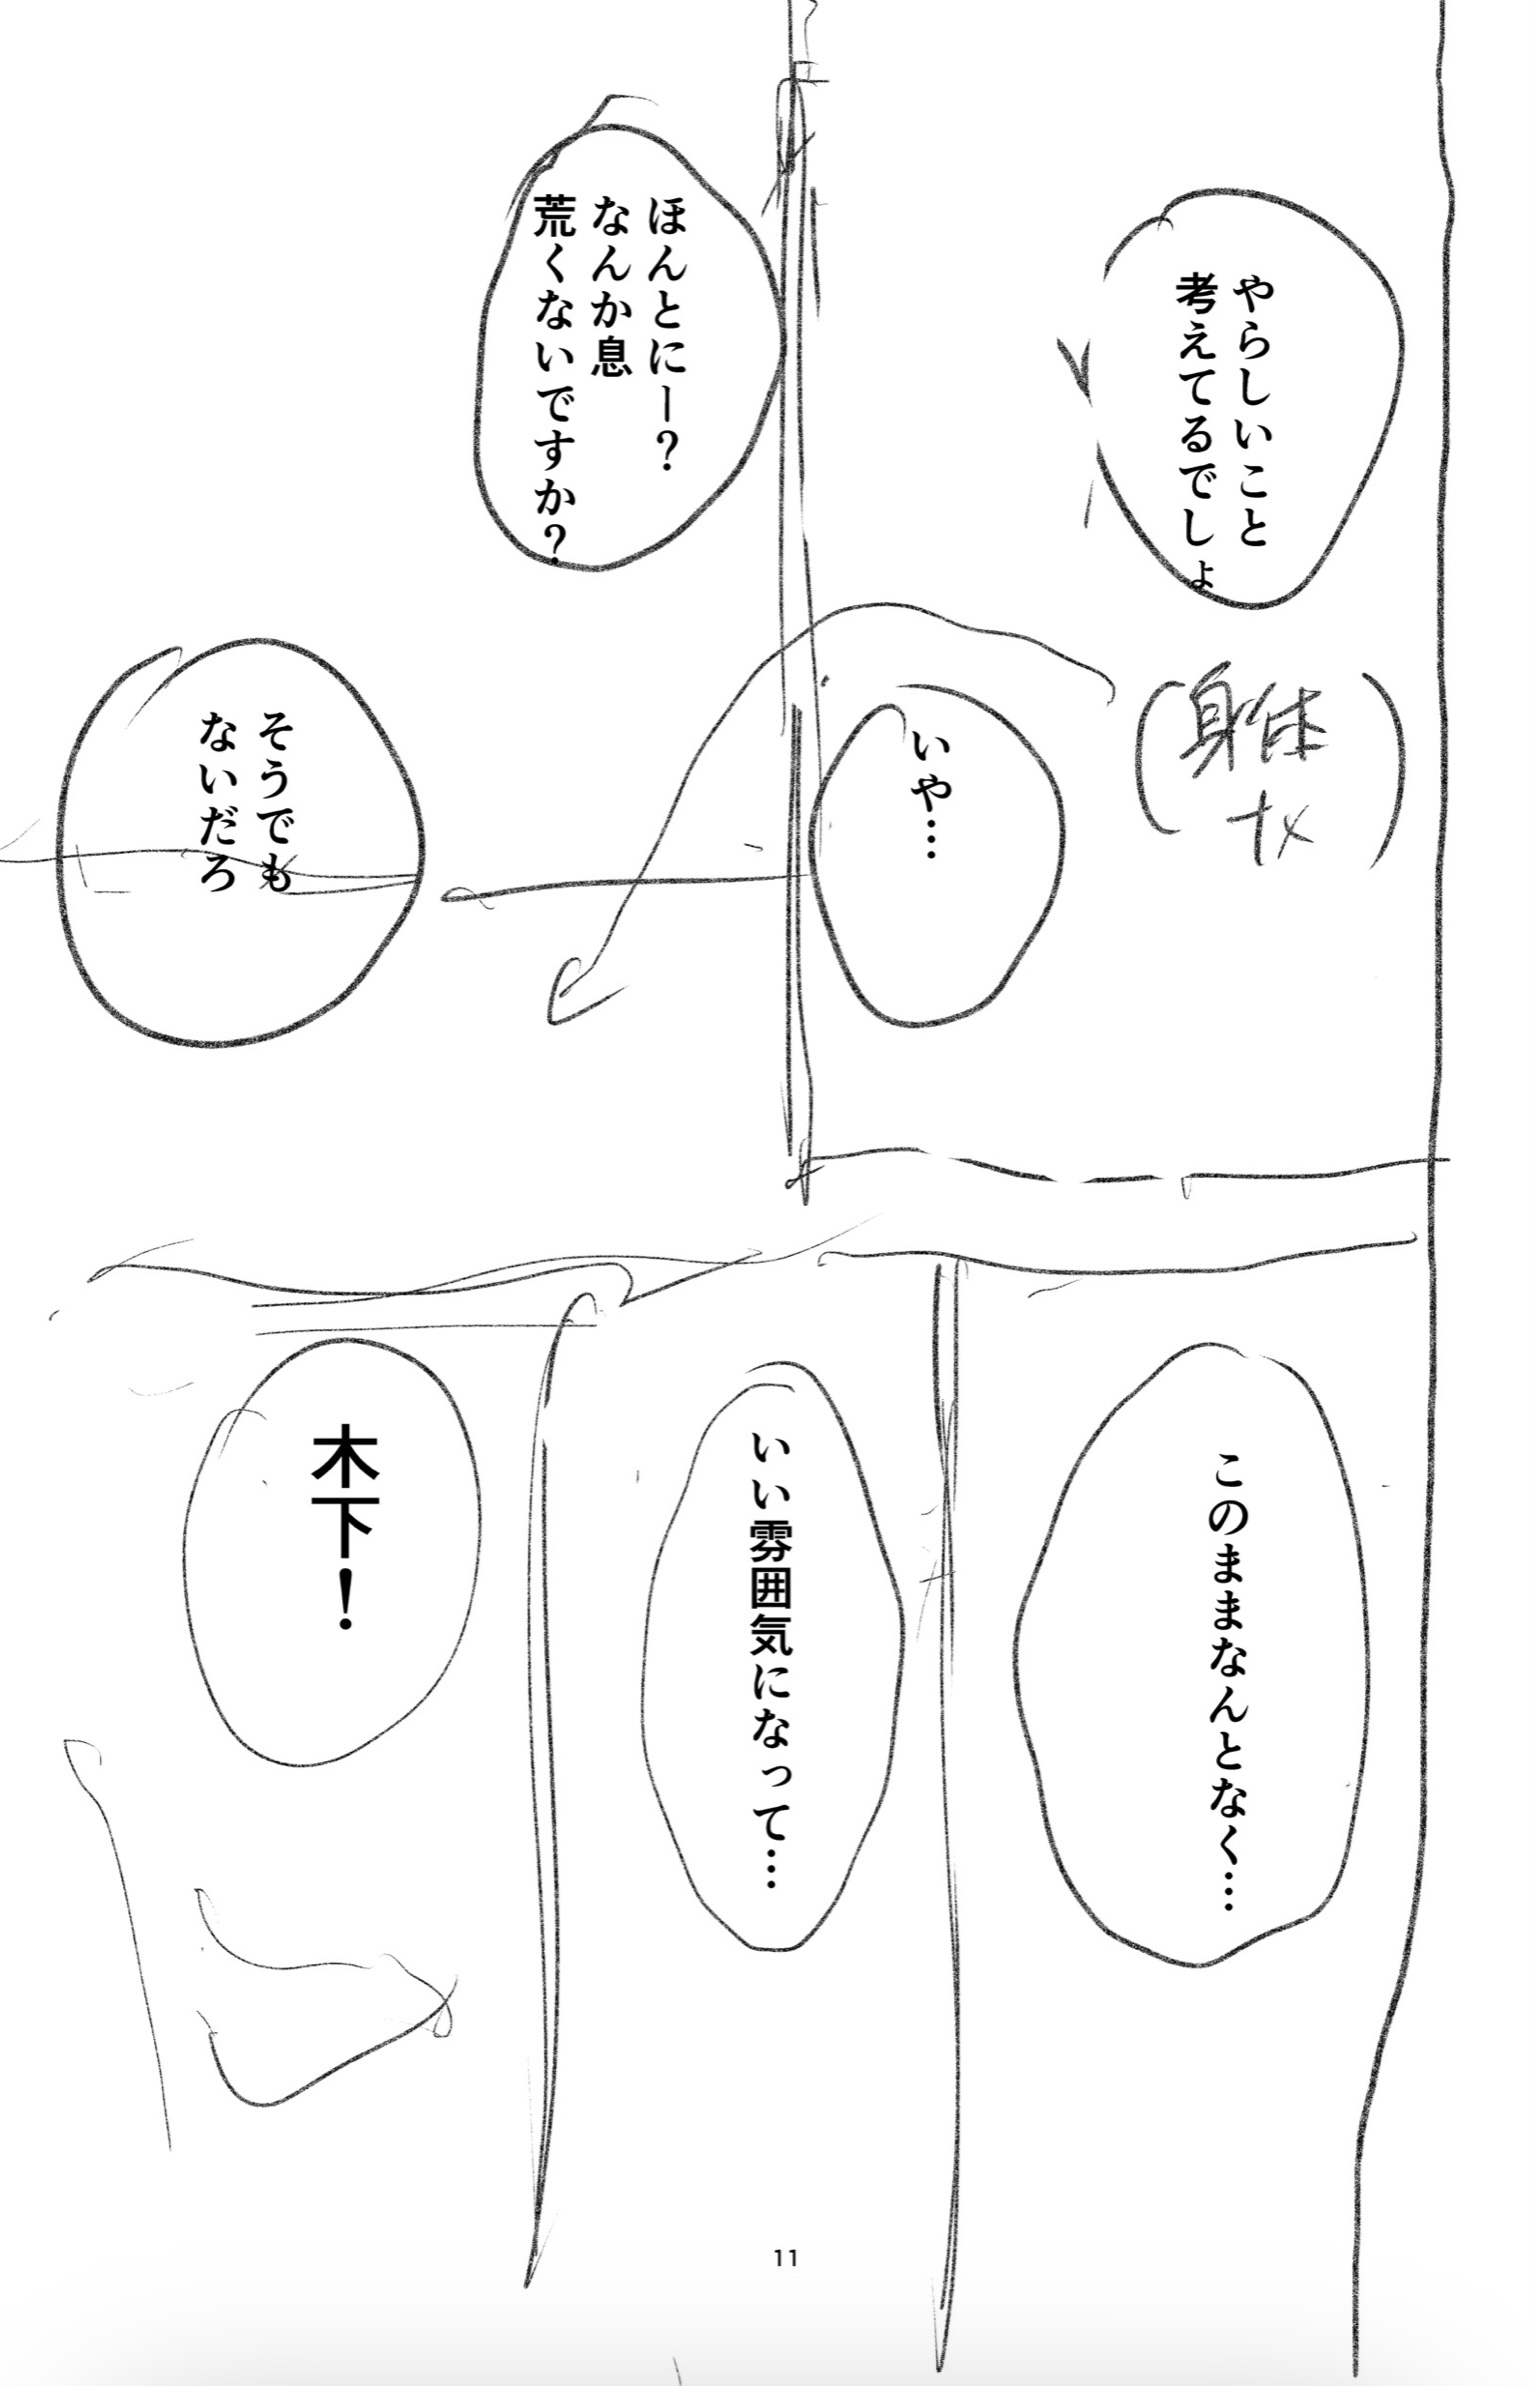 やらしいこと
考えてるでしょ
(身体
いや…
ほんとにー?
なんか息
荒くないですか?
そうでも
ないだろ
このままなんとなく…
いい雰囲気になって…
木下!
11